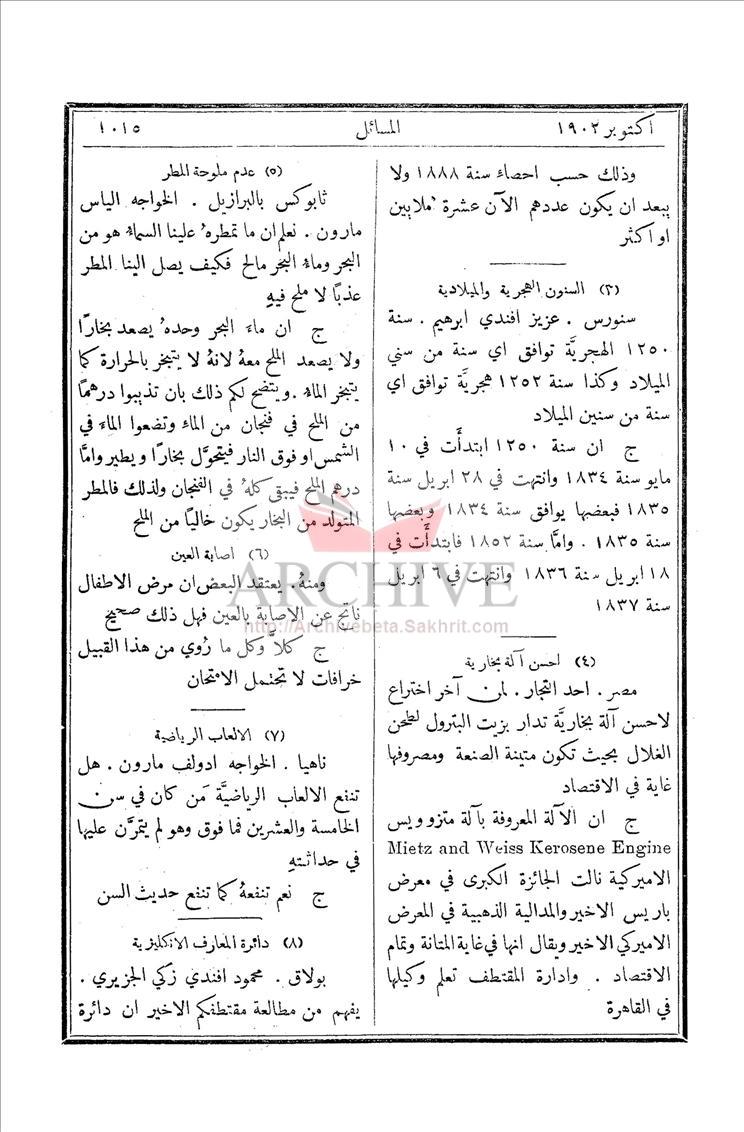 اكتوبر ١٩٠٢
المسائل
١٠١٥
وذلك حسب احصاء سنة ١٨٨٨ ولا
يبعد ان يكون عددهم الآن عشرة ملايين
او اكثر
(٣) السنون الهجرية والميلادية
سنورس . عزيز افندي ابرهيم . سنة
١٢٥٠ الهجريَّة توافق اي سنة من سني
الميلاد وكذا سنة ١٢٥٢ هجريَّة توافق اي
سنة من سنين الميلاد
ج ان سنة ١٢٥٠ ابتدأَت في ١٠
مايو سنة ١٨٣٤ وانتهت في ٢٨ ابريل سنة
١٨٣٥ فبعضها يوافق سنة ١٨٣٤ وبعضها
سنة ١٨٣٥ . وامَّا سنة ١٨٥٢ فابتدأَت في
١٨ ابريل سنة ١٨٣٦ وانتهت في ٦ ابريل
سنة ١٨٣٧
(٤) احسن آلة بخارية
مصر . احد التجار . لمن آخر اختراع
لاحسن آلة بخاريَّة تدار بزيت البترول لطحن
الغلال بحيث تكون متينة الصنعة ومصروفها
غاية في الاقتصاد
ج ان الآلة المعروفة بآلة متزوويس
Mietz and Weiss Kerosene Engine
الاميركية نالت الجائزة الكبرى في معرض
باريس الاخير والمدالية الذهبية في المعرض
الاميركي الاخير ويقال انها في غاية المتانة وتمام
الاقتصاد . وادارة المقتطف تعلم وكيلها
في القاهرة
(٥) عدم ملوحة المطر
ثابوكس بالبرازيل . الخواجه الياس
مارون . نعلم ان ما تمطرهُ علينا السماءُ هو من
البحر وماءُ البحر مالح فكيف يصل الينا المطر
عذبًا لا ملح فيهِ
ج ان ماء البحر وحدهُ يصعد بخارًا
ولا يصعد الملح معهُ لانهُ لا يتبخر بالحرارة كما
يتبخر الماءُ . ويتضح لكم ذلك بان تذيبوا درهمًا
من الملح في فنجان من الماء وتضعوا الماءَ في
الشمس او فوق النار فيتحوَّل بخارًا ويطير وامَّا
درهم الملح فيبقى كلهُ في الفنجان ولذلك فالمطر
المتولد من البخار يكون خاليًا من الملح
(٦) اصابة العين
ومنهُ . يعتقد البعض ان مرض الاطفال
ناتج عن الاصابة بالعين فهل ذلك صحيح
ج كلاَّ وكل ما رُوي من هذا القبيل
خرافات لا تحتمل الامتحان
(٧) الالعاب الرياضية
ناهيا . الخواجه ادولف مارون . هل
تنفع الالعاب الرياضيَّة مَن كان في سن
الخامسة والعشرين فما فوق وهو لم يتمرَّن عليها
في حداثتهِ
ج نعم تنفعهُ كما تنفع حديث السن
(٨) دائرة المعارف الانكليزية
بولاق . محمود افندي زكي الجزيري .
يفهم من مطالعة مقتطفكم الاخير ان دائرة
ARCHIVE
http://Archivebeta.Sakhrit.com